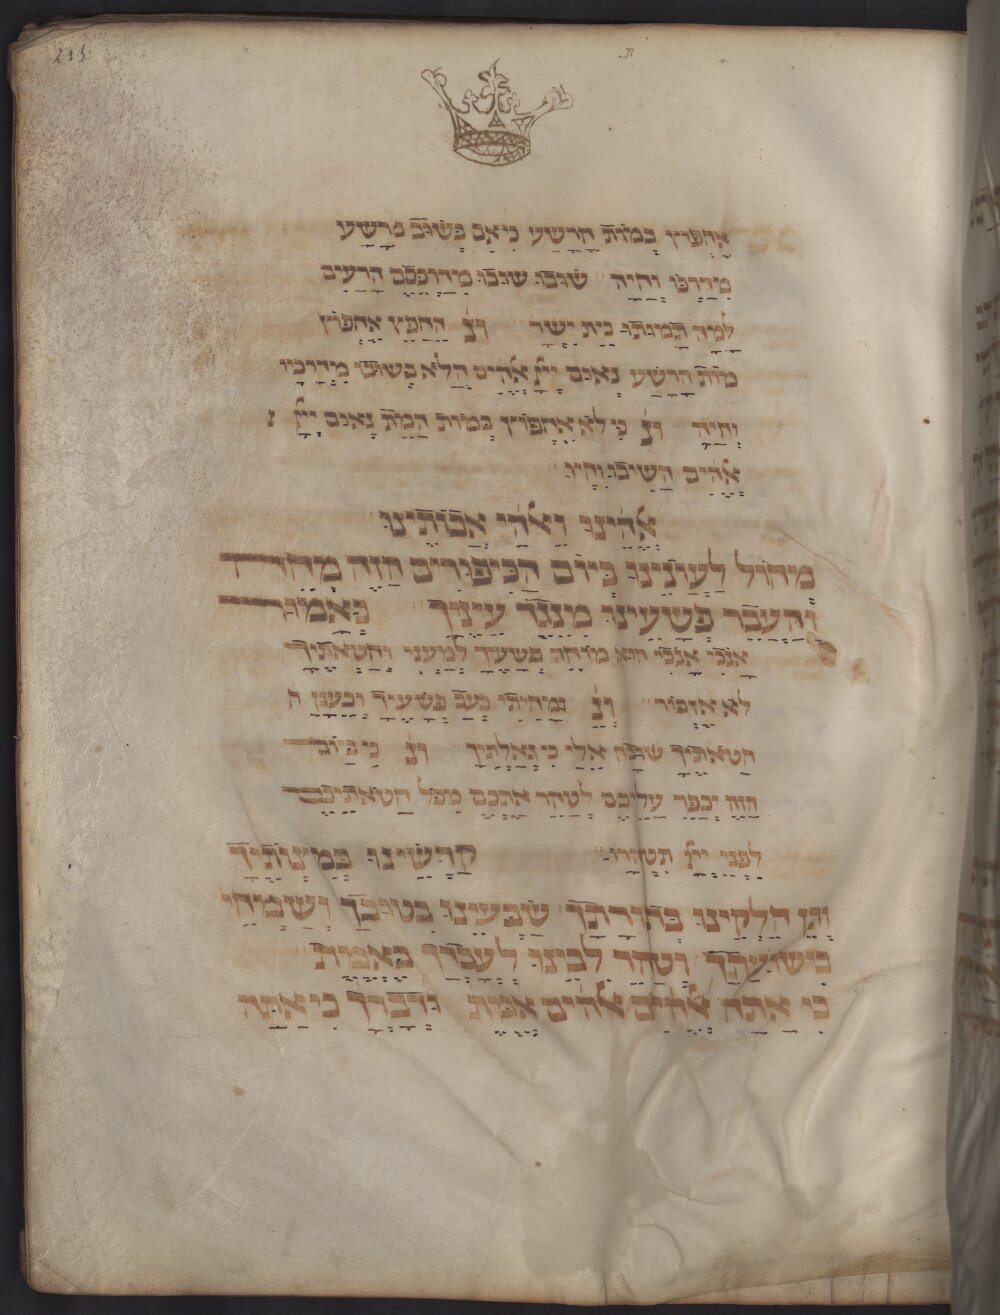 215
אֶחְפּוֹץ בְּמוֹת הָרָשָׁע כִּי אִם בְּשׁוּב מֵרָשָׁע
מִדַרְכּוֹ וְחָיָה שׁוּבוּ שׁוּבוּ מִדַרְכֵכֶם הָרָעִים
לָמָה תָמוּתוּ בֵית יִשְׂרָ וְנֶ הֶחָפֵץ אֶחְפּוֹץ
מוֹת הָרָשָׁע נְאוּם יְיָ אֱלֹהִים הֲלֹא בְּשׁוּבוֹ מִדְרָכָיו
וְחָיָה וְנֶ כִּי לֹא אֶחְפּוֹץ בְּמוֹת הַמֵת נְאוּם יְיָ
אֱלֹהִים הָשִׁיבוּ וִחְיוּ
אֱלֹהֵינוּ וֵאלֹהֵי אֲבוֹתֵינוּ
מְחוֹל לַעֲוֹנֵינוּ בְּיוֹם הַכִּיפּוּרִים הַזֶה מְחֵה
וְהַעֲבֵר פְּשָׁעֵינוּ מִנֶגֶד עֵינֶיךָ כָּאָמוּר
אָנֹכִי אָנֹכִי הוּא מוֹחֶה פְשָׁעֶיךָ לְמַעֲנִי וְחַטֹאתֶיךָ
לֹא אֶזְכּוֹר וְנֶ מָחִיתִי כָעָב פְּשָׁעֶיךָ וְכֶעָנָן ח
חַטֹאתֶיךָ שׁוּבָה אֵלַי כִּי גְאַלְתִּיךָ וְנֶ כִּי בַיוֹם
הַזֶה יְכַפֵּר עֲלֵיכֶם לְטַהֵר אֶתְכֶם מִכֹּל חַטֹאתֵיכֶם
לִפְנֵי יְיָ תִּטְהָרוּ קַדְּשֵׁינוּ בְּמִצְוֹתֶיךָ
וְתֵן חֶלְקֵינוּ בְּתוֹרָתָךְ שַׂבְּעֵינוּ מִטוּבָךְ וְשַׂמְחֵינוּ
בִּישׁוּעָתָךְ וְטַהֵר לִבֵּינוּ לְעָבְדְךָ בֶּאֱמֶת
כִּי אַתָּה אֱלֹהִים אֱלֹהִים אֱמֶת וּדְבָרְךָ כִּי אַתָּה